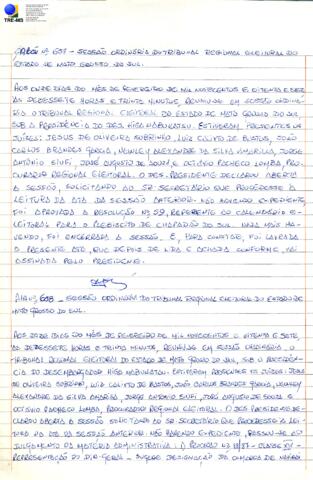 TRE-MS
ATA Nº 637 - SESSÃO ORDINÁRIA DO TRIBUNAL REGIONAL ELEITORAL DO
ESTADO DE MATO GROSSO DO SUL.
AOS ONZE DIAS DO MÊS DE FEVEREIRO DE MIL NOVECENTOS E OITENTA E SETE,
ÀS DEZESSETE HORAS E TRINTA MINUTOS, REUNIU-SE EM SESSÃO ORDINÁ-
RIA O TRIBUNAL REGIONAL ELEITORAL DO ESTADO DE MATO GROSSO DO SUL,
SOB A PRESIDÊNCIA DO DES. HIGA NABUKATSU. ESTIVERAM PRESENTES OS
JUÍZES: JESUS DE OLIVEIRA SOBRINHO, LUIZ COUTO DE BASTOS, JOÃO
CARLOS BRANDES GARCIA, NUNLEY ALEXANDRE DA SILVA AMARILIA, JORGE
ANTÔNIO SIUFI, JOSÉ AUGUSTO DE SOUZA E OCTÁVIO PACHECO LOMBA, PRO-
CURADOR REGIONAL ELEITORAL. O DES. PRESIDENTE DECLAROU ABERTA
A SESSÃO, SOLICITANDO AO SR. SECRETÁRIO QUE PROCEDESSE À
LEITURA DA ATA DA SESSÃO ANTERIOR. NÃO HAVENDO EXPEDIENTE,
FOI APROVADA A RESOLUÇÃO Nº 29, REFERENTE AO CALENDÁRIO E-
LEITORAL PARA O PLEBISCITO DE CHAPADÃO DO SUL. NADA MAIS HA-
VENDO, FOI ENCERRADA A SESSÃO. E, PARA CONSTAR, FOI LAVRADA
A PRESENTE ATA, QUE DEPOIS DE LIDA E ACHADA CONFORME, VAI
ASSINADA PELO PRESIDENTE.
ATA Nº 638 - SESSÃO ORDINÁRIA DO TRIBUNAL REGIONAL ELEITORAL DO ESTADO DE
MATO GROSSO DO SUL.
AOS DIAS DO MÊS DE FEVEREIRO DE MIL NOVECENTOS E OITENTA E SETE,
ÀS DEZESSETE HORAS E TRINTA MINUTOS, REUNIU-SE EM SESSÃO ORDINÁRIA, O
TRIBUNAL REGIONAL ELEITORAL DO ESTADO DE MATO GROSSO DO SUL, SOB A PRESIDÊN-
CIA DO DESEMBARGADOR HIGA NABUKATSU. ESTIVERAM PRESENTES OS JUÍZES: JESUS
DE OLIVEIRA SOBRINHO, LUIZ COUTO DE BASTOS, JOÃO CARLOS BRANDES GARCIA, NUNLEY
ALEXANDRE DA SILVA AMARILIA, JORGE ANTÔNIO SIUFI, JOSÉ AUGUSTO DE SOUZA E
OCTÁVIO PACHECO LOMBA, PROCURADOR REGIONAL ELEITORAL. O DES. PRESIDENTE DE-
CLAROU ABERTA A SESSÃO SOLICITANDO AO SR. SECRETÁRIO QUE PROCEDESSE À LEI-
TURA DA ATA DA SESSÃO ANTERIOR. NÃO HAVENDO EXPEDIENTE, PASSOU-SE AO
JULGAMENTO DA MATÉRIA ADMINISTRATIVA: PROCESSO Nº /87 - CLASSE XV -
REPRESENTAÇÃO DO DIR-GERAL - SUGERE DESIGNAÇÃO DA